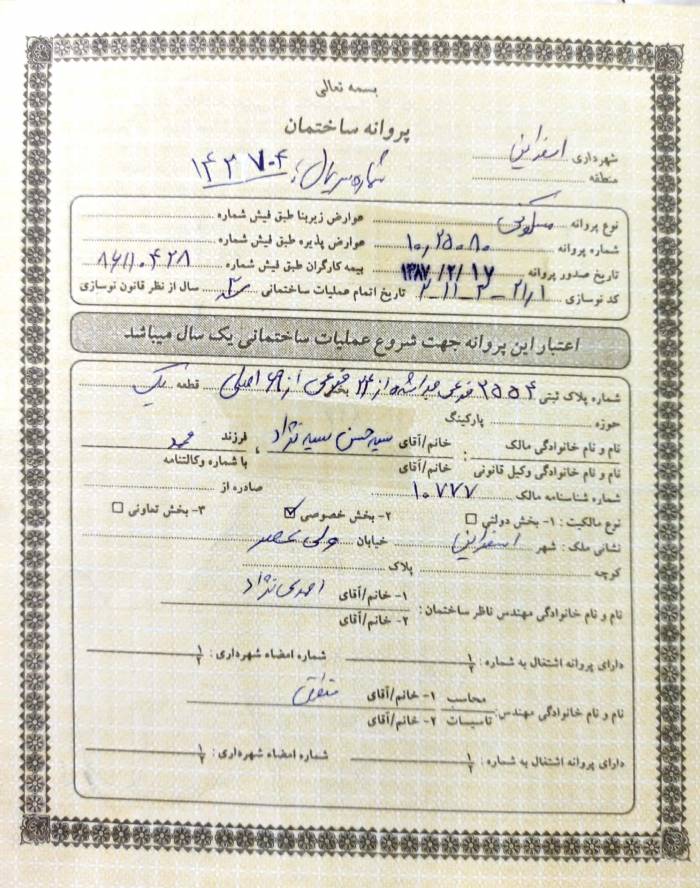 بسمه تعالی
پروانه ساختمان
شهرداری اسفراین
منطقه
شماره سریال: ۱۴۳۷۰۴
نوع پروانه مسکونی عوارض زیربنا طبق فیش شماره
شماره پروانه ۱۰٫۲۵۰۸۰ عوارض پذیره طبق فیش شماره
تاریخ صدور پروانه ۱۳۸۷/۲/۱۷ بیمه کارگران طبق فیش شماره
کد نوسازی تاریخ اتمام عملیات ساختمانی سال از نظر قانون نوسازی
اعتبار این پروانه جهت شروع عملیات ساختمانی یک سال میباشد.
شماره پلاک ثبتی ۲۵۵۴ فرعی مجزا شده از ۲۴ بخش فرعی از ۶۹ اصلی قطعه یک
حوزه پارکینگ
نام و نام خانوادگی مالک : خانم/آقای سید حسن سید نژاد فرزند محمد
نام و نام خانوادگی وکیل قانونی خانم/آقای با شماره وکالتنامه
شماره شناسنامه مالک ۱۰۷۷۷ صادره از
نوع مالکیت : ۱- بخش دولتی ☐ ۲- بخش خصوصی ☑ ۳- بخش تعاونی ☐
نشانی ملک : شهر اسفراین خیابان ولی عصر
کوچه پلاک
نام و نام خانوادگی مهندس ناظر ساختمان : ۱- خانم/آقای احمدی نژاد
۲- خانم/آقای
دارای پروانه اشتغال به شماره : ۱ ۲ شماره امضاء شهرداری : ۱ ۲
نام و نام خانوادگی مهندس : محاسب ۱- خانم/آقای متقی
تاسیسات ۲- خانم/آقای
دارای پروانه اشتغال به شماره : ۱ ۲ شماره امضاء شهرداری : ۱ ۲